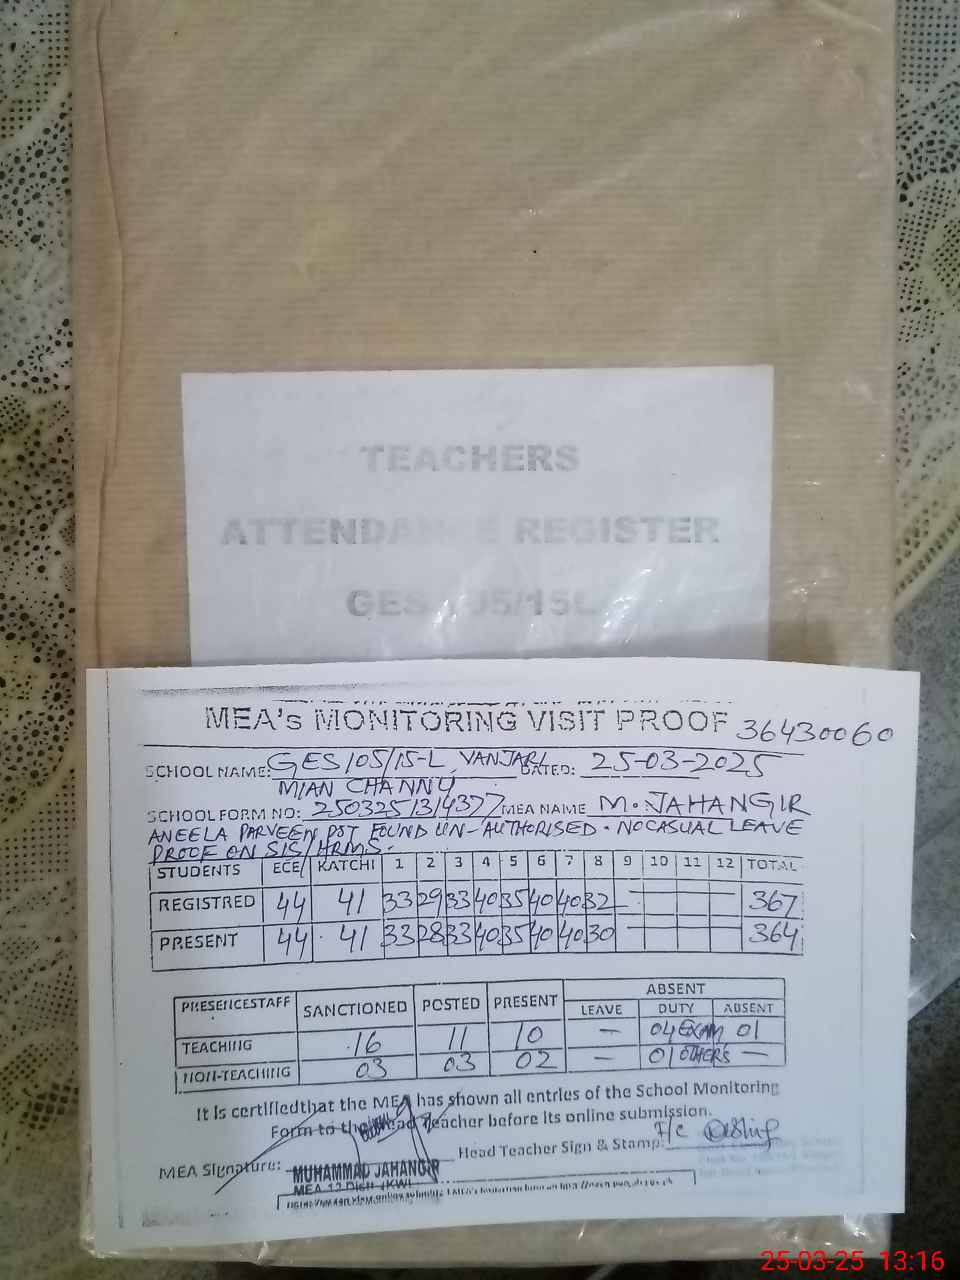 TEACHERS
ATTENDANCE REGISTER
GES 105/15L
MEA's MONITORING VISIT PROOF 36430060
SCHOOL NAME: GES 105/15-L, VANJARI DATED: 25-03-2025
MIAN CHANNU
SCHOOL FORM NO: 2503251314377 MEA NAME M. JAHANGIR
ANEELA PARVEEN PST FOUND UN-AUTHORISED. NO CASUAL LEAVE
PROOF ON SIS/HRMS.
STUDENTS ECE KATCHI 1 2 3 4 5 6 7 8 9 10 11 12 TOTAL
REGISTRED 44 41 33 29 33 40 35 40 40 32 367
PRESENT 44 41 33 28 33 40 35 40 40 30 364
PRESENCESTAFF SANCTIONED POSTED PRESENT ABSENT
LEAVE DUTY ABSENT
TEACHING 16 11 10 — 04 EXAM 01
NON-TEACHING 03 03 02 — 01 OTHERS —
It is certifiedthat the MEA has shown all entries of the School Monitoring
Form to the Head Teacher before its online submission.
MEA Signature: Head Teacher Sign & Stamp: I/c
MUHAMMAD JAHANGIR
25-03-25 13:16